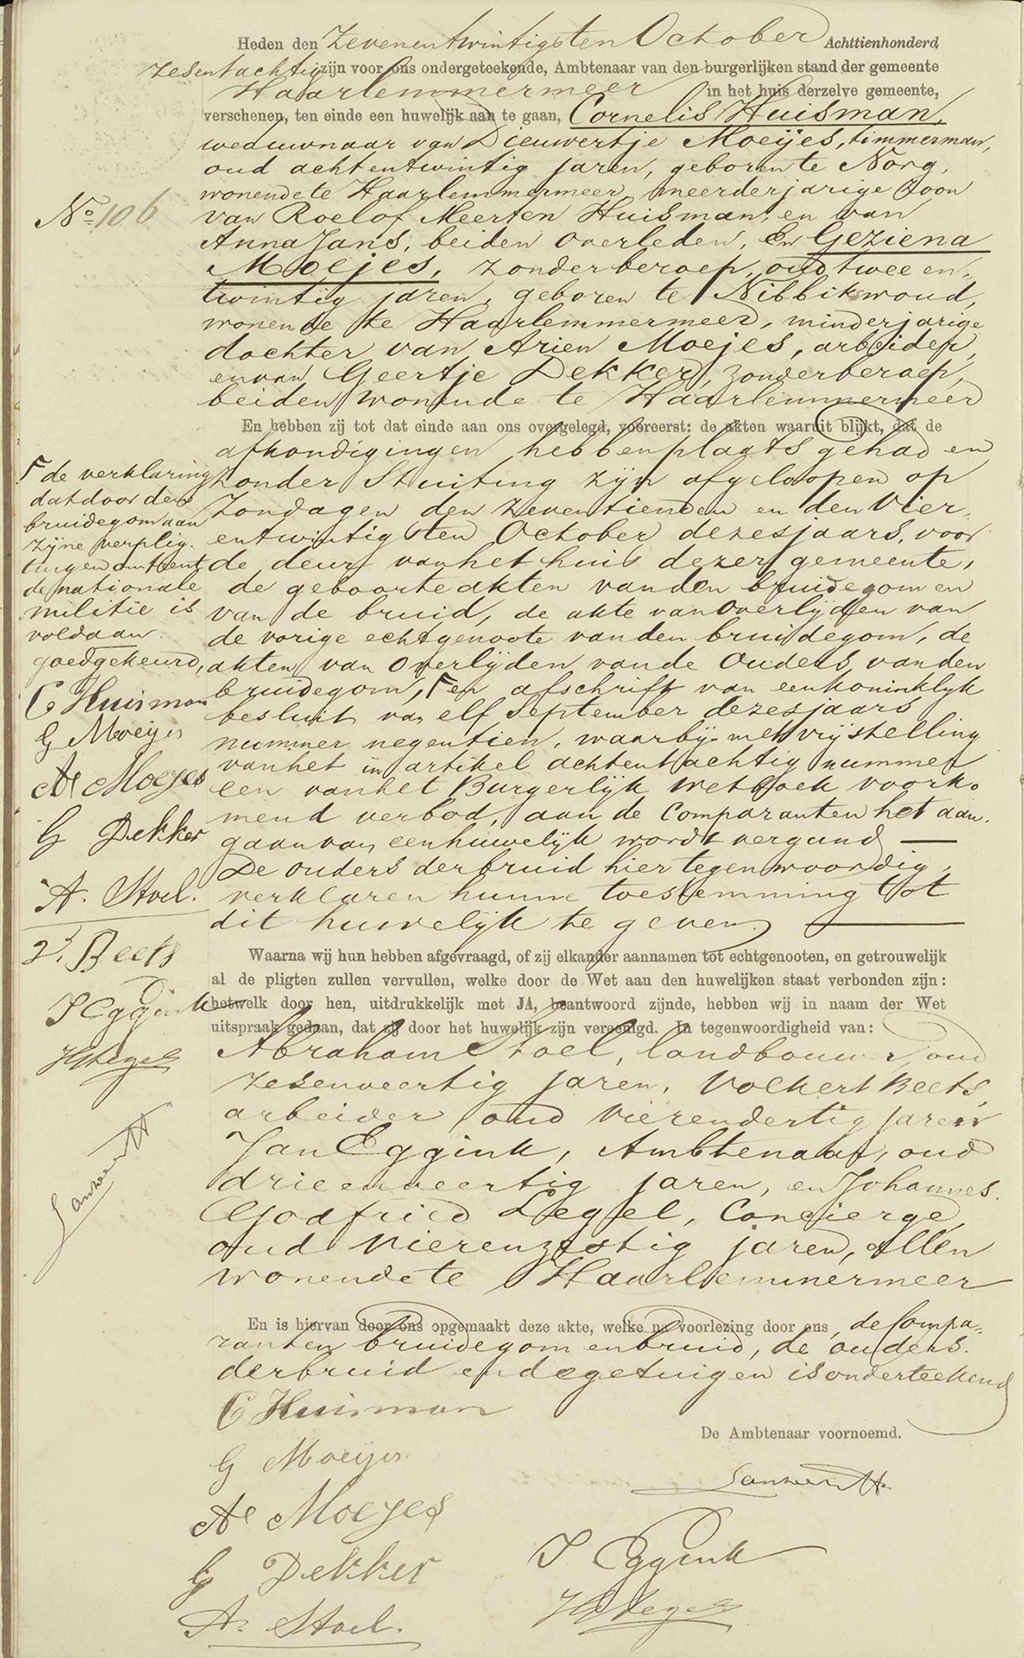 Heden den Zevenentwintigsten October Achttienhonderd
zesentachtig zijn voor ons ondergeteekende, Ambtenaar van den burgerlijken stand der gemeente
Haarlemmermeer in het huis derzelve gemeente,
verschenen, ten einde een huwelijk aan te gaan, Cornelis Huisman,
weduwnaar van Dieuwertje Moeijes, timmerman,
oud achtentwintig jaren, geboren te Norg,
wonende te Haarlemmermeer, meerderjarige zoon
No 106
van Roelof Meerten Huisman en van
Anna Jans, beiden overleden, En Geziena
Moejes, zonder beroep, oud twee en
twintig jaren, geboren te Nibbikwoud,
wonende te Haarlemmermeer, minderjarige
dochter van Arien Moejes, arbeider,
en van Geertje Dekker, zonder beroep,
beiden wonende te Haarlemmermeer
En hebben zij tot dat einde aan ons overgelegd, vooreerst: de akten waaruit blijkt, dat de
afkondigingen hebben plaats gehad en
zonder stuiting zijn afgeloopen op
Zondagen den Zeventienden en den Vier-
entwintigsten October dezes jaars, voor
de deur van het huis dezer gemeente,
de geboorteakten van den bruidegom en
van de bruid, de akte van overlijden van
de vorige echtgenoote van den bruidegom, de
akten van overlijden van de ouders van den
bruidegom, Γ en afschrift van een koninklijk
besluit van elf September dezes jaars
nummer negentien, waarbij met vrijstelling
van het in artikel achtentachtig nummer
een van het Burgerlijk Wetboek voorko-
mend verbod, aan de Comparanten het aan-
gaan van een huwelijk wordt vergund
De ouders der bruid hier tegenwoordig,
verklaren hunne toestemming tot
dit huwelijk te geven
Γ de verklaring
dat door den
bruidegom aan
zijne verplig-
tingen omtrent
de nationale
militie is
voldaan.
goedgekeurd,
C Huisman
G Moeijes
A Moeyes
G Dekker
A. Stoel.
V. Beets
J Eggink
JG Legel
Waarna wij hun hebben afgevraagd, of zij elkander aannamen tot echtgenooten, en getrouwelijk
al de pligten zullen vervullen, welke door de Wet aan den huwelijken staat verbonden zijn:
hetwelk door hen, uitdrukkelijk met JA, beantwoord zijnde, hebben wij in naam der Wet
uitspraak gedaan, dat zij door het huwelijk zijn vereenigd. In tegenwoordigheid van:
Abraham Stoel, landbouwer, oud
zesenveertig jaren, Volkert Beets,
arbeider oud vierendertig jaren
Jan Eggink, Ambtenaar, oud
drieenveertig jaren, en Johannes
Godfried Legel, Concierge,
oud vierenzestig jaren, allen
wonende te Haarlemmermeer
En is hiervan door ons opgemaakt deze akte, welke na voorlezing door ons, de Compa-
ranten bruidegom en bruid, de ouders
der bruid en de getuigen is onderteekend
C Huisman
De Ambtenaar voornoemd.
G Moeijes
A Moeyes
G Dekker
A. Stoel.
J Eggink
JG Legel